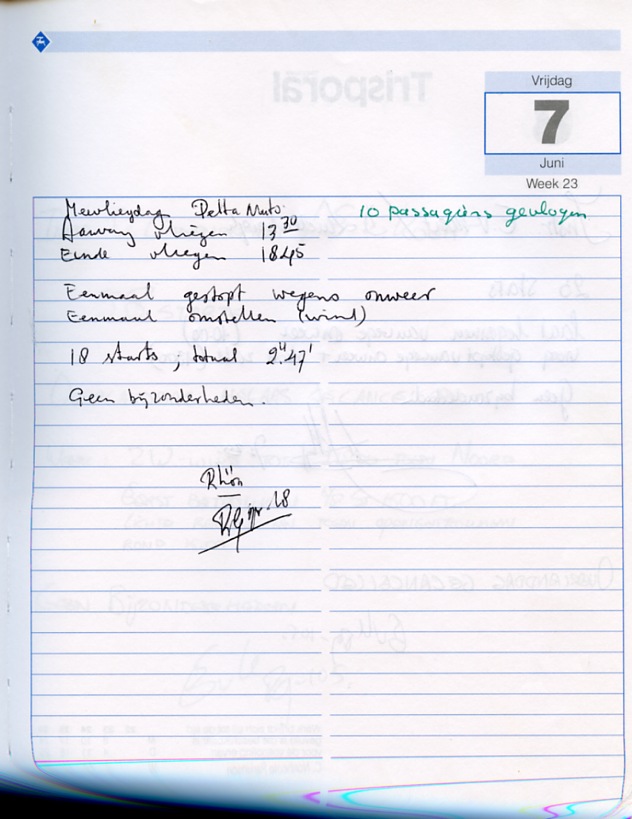 Vrijdag
7
Juni
Week 23
Meevliegdag Delta Nuts. 10 passagiers gevlogen
Aanvang vliegen 13 30
Einde vliegen 1845
Eenmaal gestopt wegens onweer
Eenmaal omstellen (wind)
18 starts; totaal 2.u 47'
Geen bijzonderheden.
Rhön